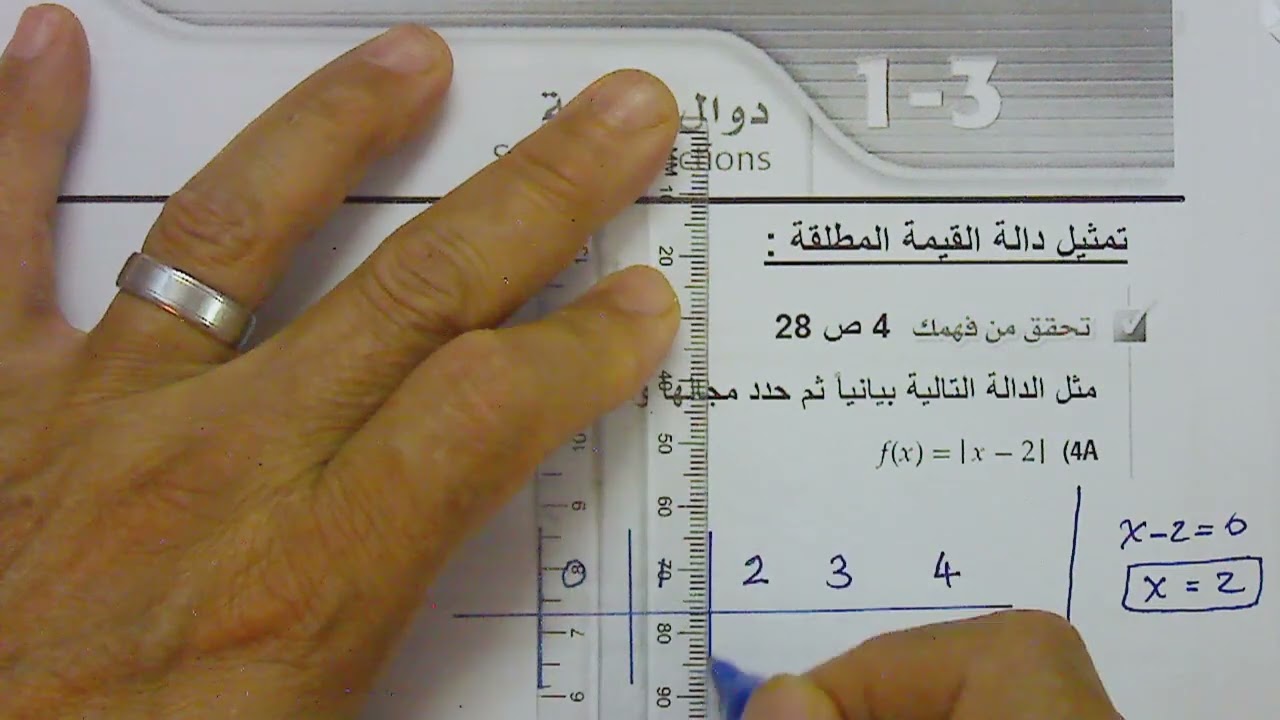 1-3
دوال
تمثيل دالة القيمة المطلقة :
تحقق من فهمك 4 ص 28
مثل الدالة التالية بيانياً ثم حدد مجالها
4A) f(x) = |x − 2|
x-2=0
x = 2
2 3 4
MM 10 20 40 50 60 70 80 90
12 10 9 8 7 6